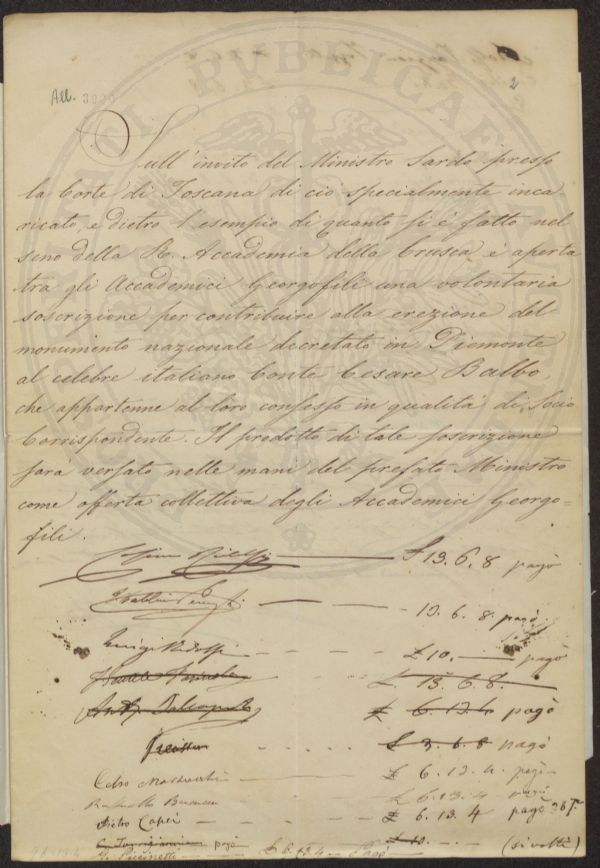 All. 3020
2
Sull' invito del Ministro Sardo presso
la Corte di Toscana di ciò specialmente inca
ricato, e dietro l'esempio di quanto si è fatto nel
seno della R. Accademia della Crusca è aperta
tra gli Accademici Georgofili una volontaria
soscrizione per contribuire alla erezione del
monumento nazionale decretato in Piemonte
al celebre italiano Conte Cesare Balbo,
che appartenne al loro consesso in qualità di Socio
Corrispondente. Il prodotto di tale soscrizione
sarà versato nelle mani del prefato Ministro
come offerta collettiva degli Accademici Georgo=
fili.
Cosimo Ridolfi £ 13. 6. 8 pagò
Ubaldino Peruzzi 13. 6. 8. pagò
Luigi Ridolfi £ 10. pagò
£. 13. 6. 8.
£ 6. 13. 4 pagò
£ 3. 6. 8 pagò
Celso Marzucchi £ 6. 13. 4. pagò
Raffaello £ 6. 13. 4 pagò
Pietro Capei £ 6. 13. 4 pagò
pagò £ 10. (si volti)
£ 6. 13. 4 Pagò